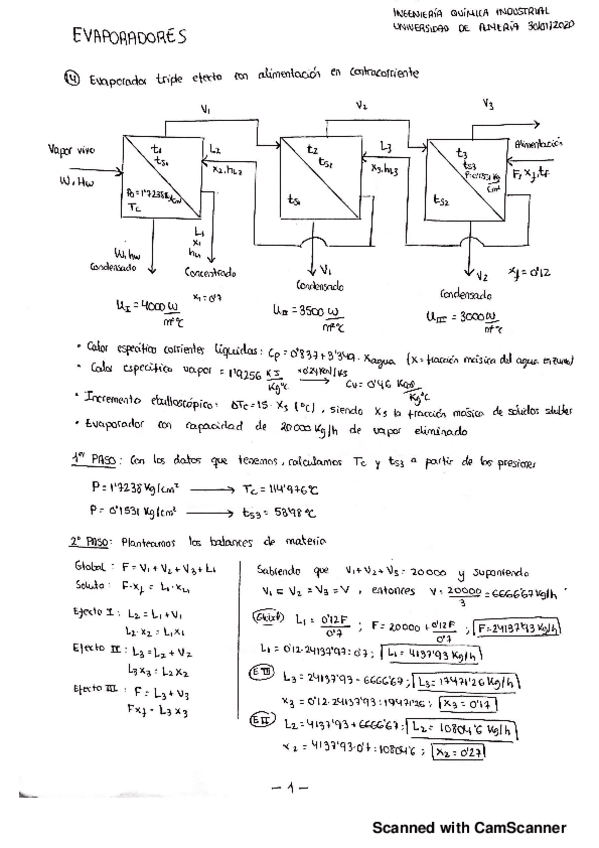 INGENIERÍA QUÍMICA INDUSTRIAL
UNIVERSIDAD DE ALMERÍA 30/01/2020
EVAPORADORES
14 Evaporador triple efecto con alimentación en contracorriente
V1 V2 V3
Vapor vivo
W, Hw
t1
ts1
P0=1'7238 Kg/cm²
Tc
L2
x2, hL2
t2
ts2
ts1
L3
x3, hL3
t3
ts3
ts2
Alimentación
F, xf, tf
W, hw
Condensado
L1
x1
hL1
Concentrado
x1=0'7
V1
Condensado
V2
Condensado
xf=0'12
UI = 4000 W/m²°C
UII = 3500 W/m²°C
UIII = 3000 W/m²°C
• Calor específico corrientes líquidas: Cp = 0'837+3'349·Xagua (x = fracción másica del agua en zumo)
• Calor específico vapor = 1'9256 KJ/Kg°C → Cv = 0'46 Kcal/Kg°C
• Incremento ebulloscópico: ΔTe = 15·Xs (°C), siendo Xs la fracción másica de sólidos solubles
• Evaporador con capacidad de 20000 Kg/h de vapor eliminado
1er PASO: Con los datos que tenemos, calculamos Tc y ts3 a partir de las presiones
P = 1'7238 Kg/cm² → Tc = 114'976°C
P = 0'1531 Kg/cm² → ts3 = 53'98°C
2º PASO: Planteamos los balances de materia
Global: F = V1 + V2 + V3 + L1
Soluto: F·xf = L1·xL1
Efecto I: L2 = L1+V1
L2·x2 = L1x1
Efecto II: L3 = L2 + V2
L3x3 = L2x2
Efecto III: F = L3 + V3
Fxf = L3x3
Sabiendo que V1+V2+V3 = 20000 y suponiendo
V1 = V2 = V3 = V, entonces V = 20000/3 = 6666'67 Kg/h
Global L1 = 0'12F/0'7 ; F = 20000 + 0'12F/0'7 ; F = 24137'93 Kg/h
L1 = 0'12·24137'93:0'7 ; L1 = 4137'93 Kg/h
EIII L3 = 24137'93 - 6666'67 ; L3 = 17471'26 Kg/h
x3 = 0'12·24137'93:17471'26 ; x3 = 0'17
EII L2 = 4137'93 + 6666'67 ; L2 = 10804'6 Kg/h
x2 = 4137'93·0'7:10804'6 ; x2 = 0'27
- 1 -
Scanned with CamScanner